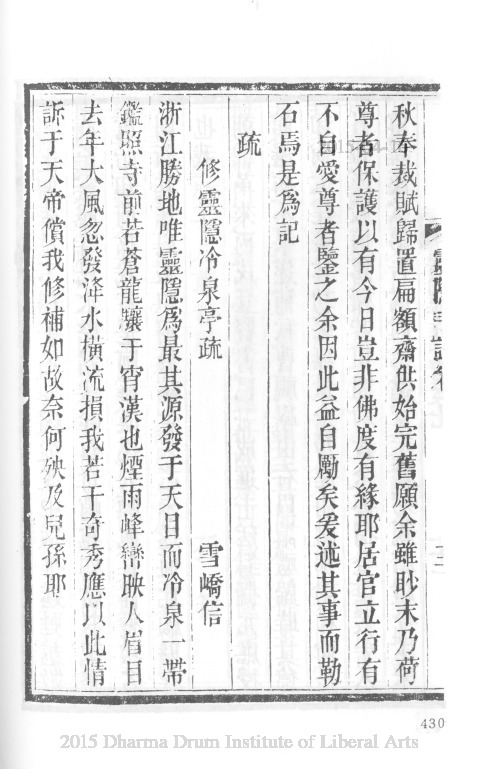 秋奉裁賦歸置扁額齋供始完舊願余雖眇末乃荷
尊者保護以有今日豈非佛度有緣耶居官立行有
不自愛尊者鑒之余因此益自勵矣爰述其事而勒
石焉是爲記
疏
修靈隱冷泉亭疏 雪嶠信
浙江勝地唯靈隱爲最其源發于天目而冷泉一帶
鑑照寺前若蒼龍驤于宵漢也煙雨峰巒映人眉目
去年大風忽發洚水橫流損我若干奇秀應以此情
訴于天帝償我修補如故奈何殃及兒孫耶
430
2015 Dharma Drum Institute of Liberal Arts